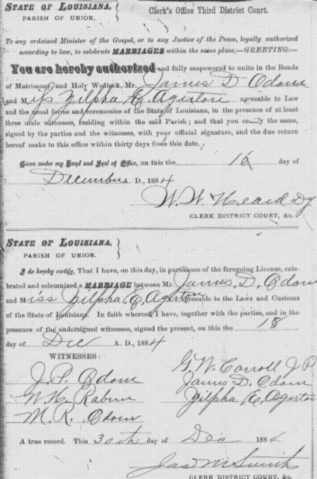 STATE OF LOUISIANA.
PARISH OF UNION.
Clerk's Office Third District Court.
To any ordained Minister of the Gospel, or to any Justice of the Peace, legally authorized
according to law, to celebrate MARRIAGES within the same place,—GREETING:—
You are hereby authorized and fully empowered to unite in the Bonds
of Matrimony and Holy Wedlock, Mr. James D Odom
and Miss Zilpha agreeable to Law
and the usual forms and ceremonies of the State of Louisiana, in the presence of at least
three male witnesses, residing within the said Parish; and that you the same,
signed by the parties and the witnesses, with your official signature, and the due return
hereof make to this office within thirty days from this date.
Given under my Hand and Seal of Office, on this the 16 day of
December A. D., 1884
W. W. Heard Dy
CLERK DISTRICT COURT, &c.
STATE OF LOUISIANA.
PARISH OF UNION.
I do hereby certify, That I have, on this day, in pursuance of the foregoing License, cele-
brated and solemnized a MARRIAGE between Mr. James D. Odom
and Miss Zilpha agreeable to the Laws and Customs
of the State of Louisiana. In faith whereof I have, together with the parties, and in the
presence of the undersigned witnesses, signed the present, on this the 18
day of Dec A. D., 1884
WITNESSES:
G. W. Carroll J. P.
J. P. Odom
James D. Odom
W. H. Rabun
Zilpha
M. R. Odom
A true record. This 30th day of Dec 1884
Jas. M. Smith
CLERK DISTRICT COURT, &c.